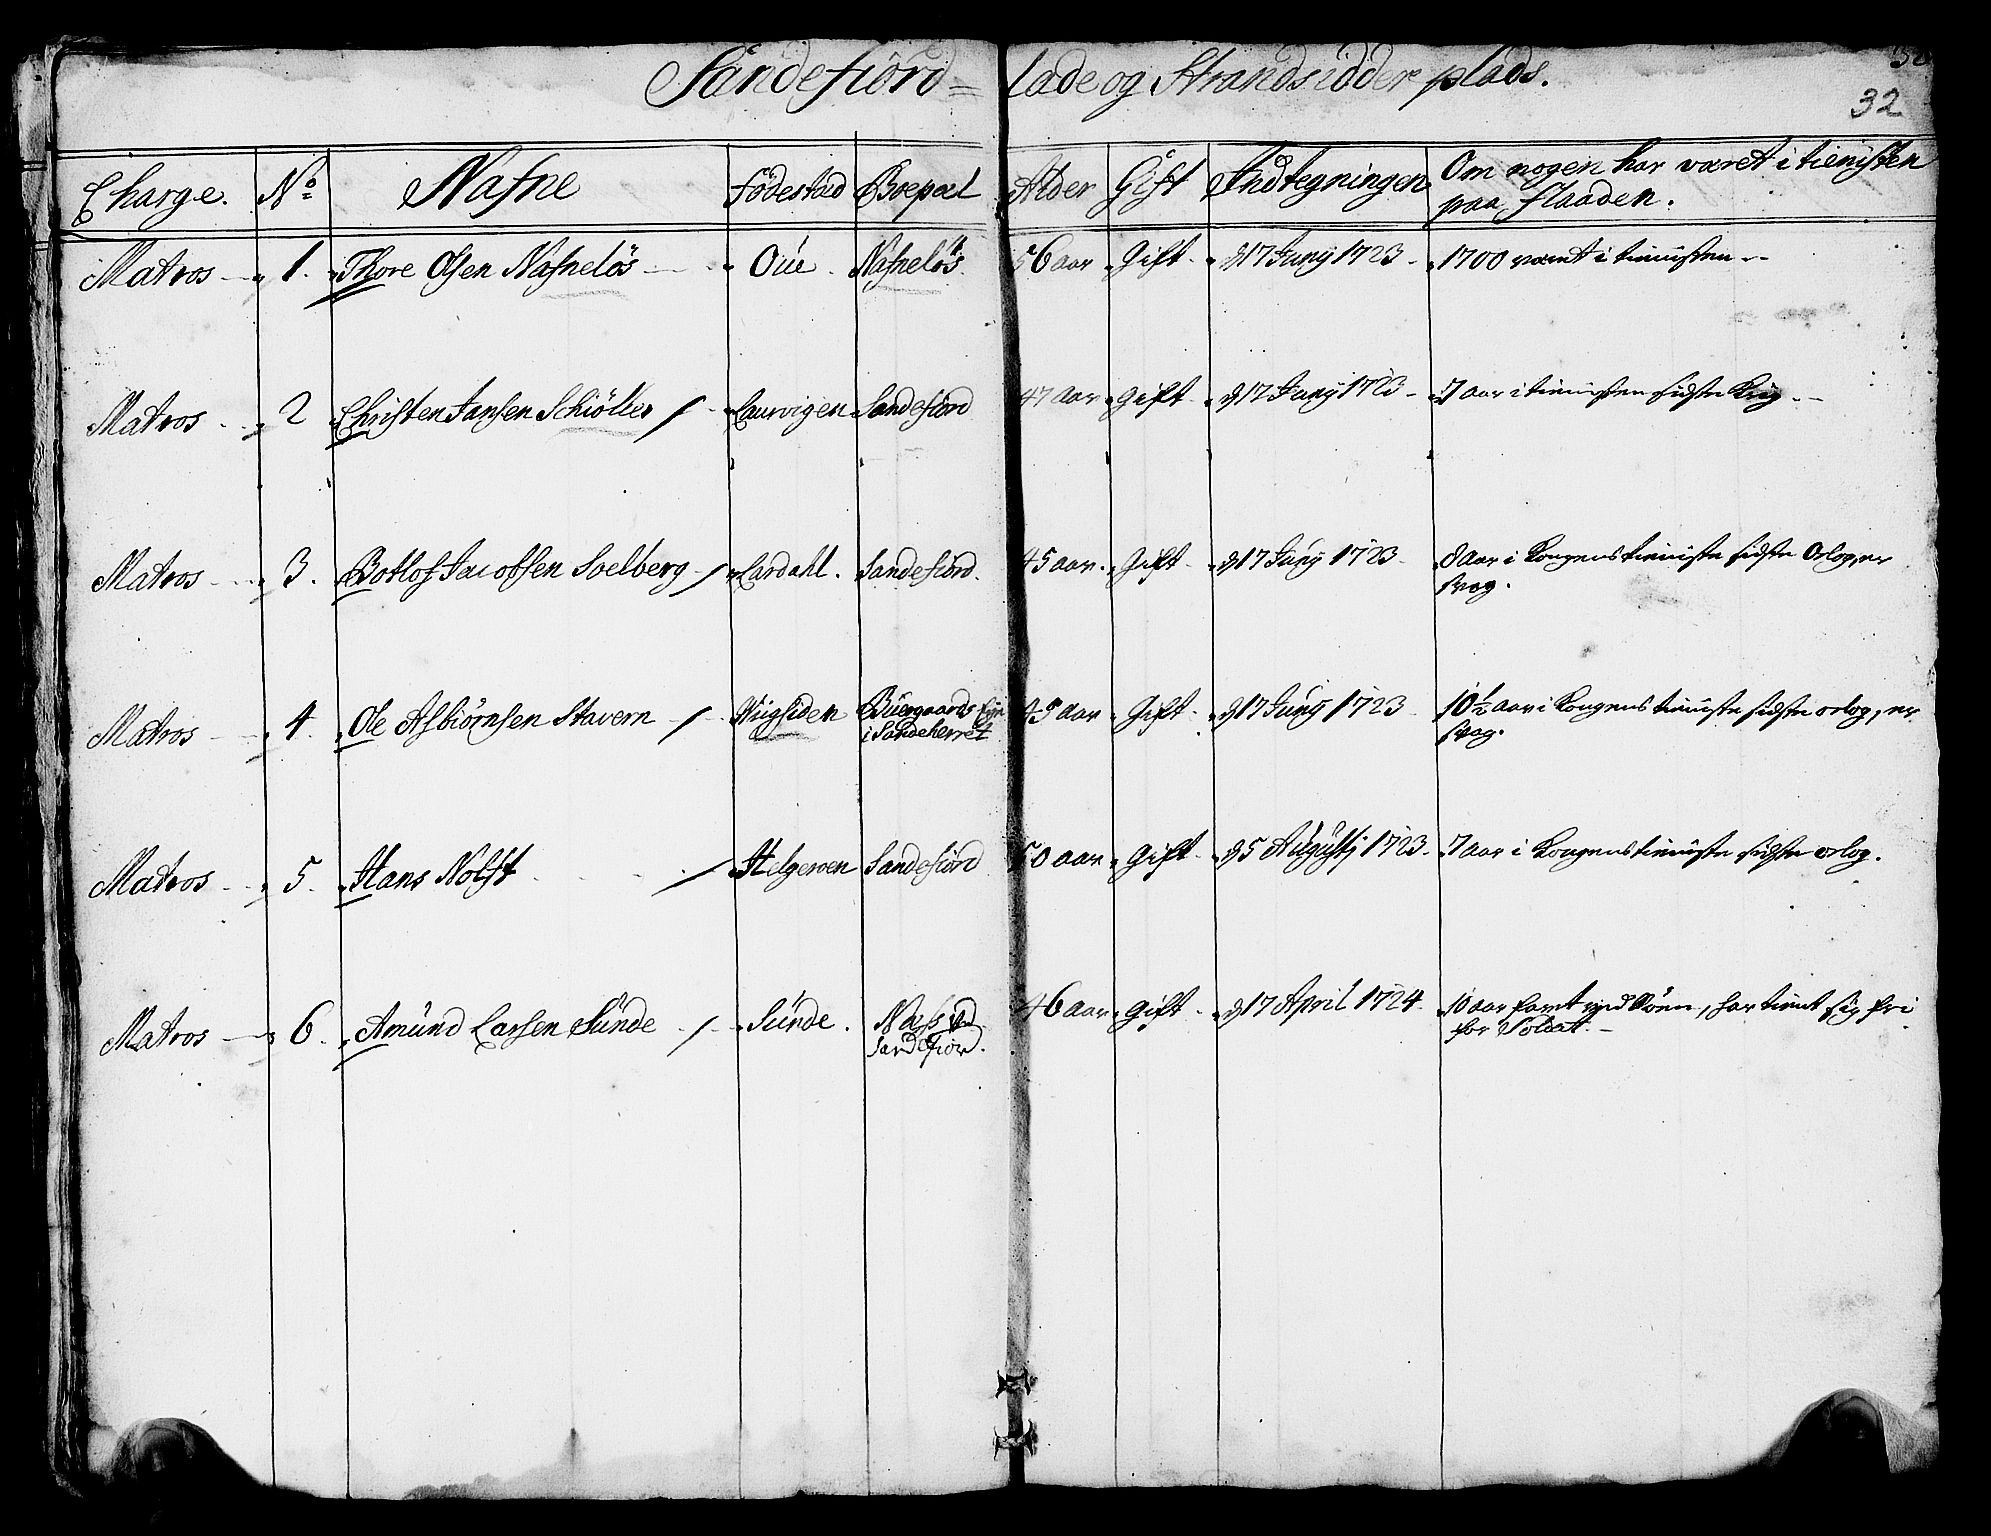 Sandefiord = lade og Strandsidder plads.
32
Charge. No Nafne Fødestæd Boepæl Alder Gift Indtegningen Om nogen har været i tienisten
paa flaaden.
Matros 1. Thore Olsen Nafneløs Oüe. Nafneløs 56 aar Gift d 17 Juny 1723 1700 været i tienisten
Matros 2 Christen Jansen Laurvigen Sandefiord 47 aar Gift d 17 Juny 1723 7 aar i tienisten sidste Krig
Matros 3. Botlof Jacobsen Soelberg Lardahl. Sandefiord. 45 aar. Gift d 17 Juny 1723 8 aar i Kongens tieniste sidste Orlog, er
svag.
Matros 4. Ole Asbiørnsen Stavern Buergaards
i Sandeherret 45 aar Gift d 17 Juny 1723 10½ aar i Kongens tieniste sidste orlog, er
svag.
Matros 5. Hans Nolft Helgeroen Sandefiord 50 aar Gift d 5 Augusti 1723. 7 aar i Kongens tieniste sidste orlog.
Matros 6. Amünd Larsen Sünde Sünde. Næs ved
Sandefior. 46 aar Gift d 17 April 1724 10 aar faret ved Søen, har tient sig fri
for Soldat